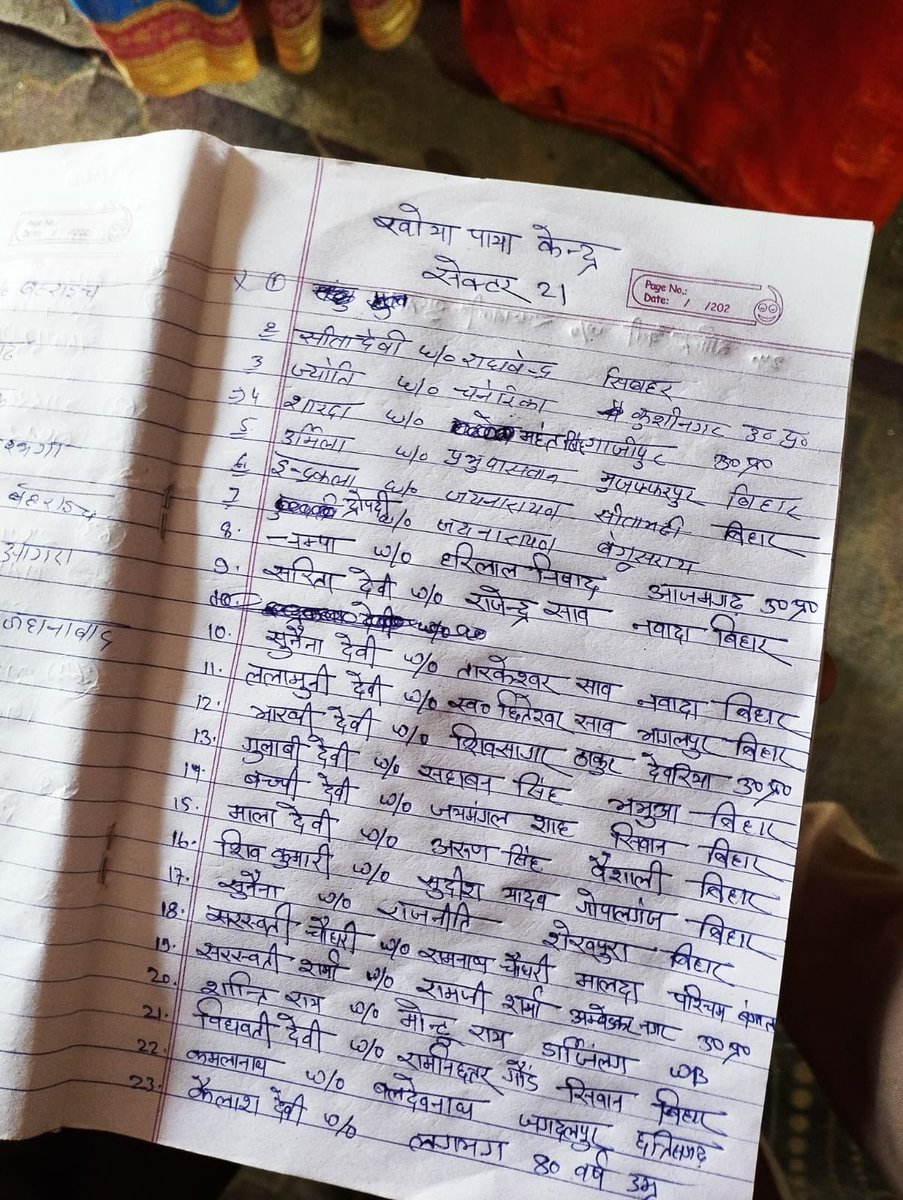 खोया पाया केन्द्र
सेक्टर 21
Page No.:
Date: / /202
X ①
2 सीता देवी w/o राघवेन्द्र सिवहर
3 ज्योति w/o चनेरिका कुशीनगर उ०प्र०
→4 शारदा w/o महंत सिंह गाजीपुर उ०प्र०
5 उर्मिला w/o प्रभुपासवान मुजफ्फरपुर बिहार
6 इन्द्रकला w/o जयनारायण सीतामढ़ी बिहार
7 द्रोपदी w/o जयनारायण बेगुसराय
8. चम्पा w/o हरिलाल निषाद आजमगढ़ उ०प्र०
9. सरिता देवी w/o राजेन्द्र साव नवादा बिहार
10. देवी w/o
10. सुनैना देवी w/o तारकेश्वर साव नवादा बिहार
11. ललामुनी देवी w/o स्व० साव भागलपुर बिहार
12. देवी w/o शिवसागर ठाकुर देवरिया उ०प्र०
13. गुलाबी देवी w/o सहाबन सिंह भभुआ बिहार
14. बच्ची देवी w/o जयमंगल शाह सिवान बिहार
15. माला देवी w/o अरुण सिंह वैशाली बिहार
16. शिव कुमारी w/o सुदीश यादव गोपालगंज बिहार
17. सुनैना w/o राजनीति शेखपुरा बिहार
18. सरस्वती चौधरी w/o रामनाथ चौधरी मालदा पश्चिम बंगाल
19. सरस्वती शर्मा w/o रामजी शर्मा अम्बेडकर नगर उ०प्र०
20. शान्ति राय w/o मोन्टू राय WB
21. विधवती देवी w/o गौंड सिवान बिहार
22. कमलानाथ w/o बलदेवनाथ जगदलपुर छतिसगढ़
23. कैलाश देवी w/o लगभग 80 वर्ष उम्र
आगरा
जहानाबाद